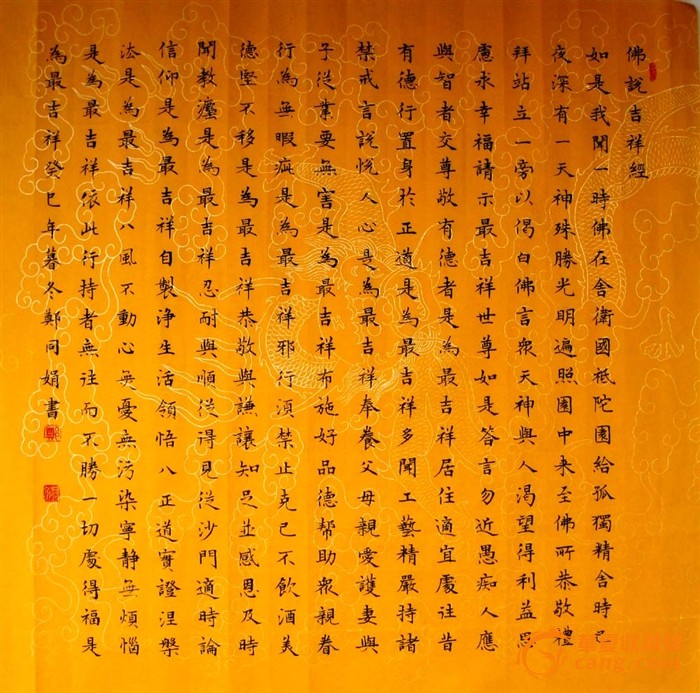 佛說吉祥經
如是我聞一時佛在舍衛國祇陀園給孤獨精舍時已
夜深有一天神殊勝光明遍照園中来至佛所恭敬禮
拜站立一旁以偈白佛言眾天神與人渴望得利益思
慮求幸福請示最吉祥世尊如是答言勿近愚痴人應
與智者交尊敬有德者是為最吉祥居住適宜處往昔
有德行置身於正道是為最吉祥多聞工藝精嚴持諸
禁戒言說悅人心是為最吉祥奉養父母親愛護妻與
子從業要無害是為最吉祥布施好品德幫助眾親眷
行為無瑕疵是為最吉祥邪行須禁止克己不飲酒美
德堅不移是為最吉祥恭敬與謙讓知足並感恩及時
聞教灋是為最吉祥忍耐與順從得見從沙門適時論
信仰是為最吉祥自製淨生活領悟八正道實證涅槃
法是為最吉祥八風不動心無憂無污染寧靜無煩惱
是為最吉祥依此行持者無往而不勝一切處得福是
為最吉祥癸巳年暮冬鄭同娟書
cang.com